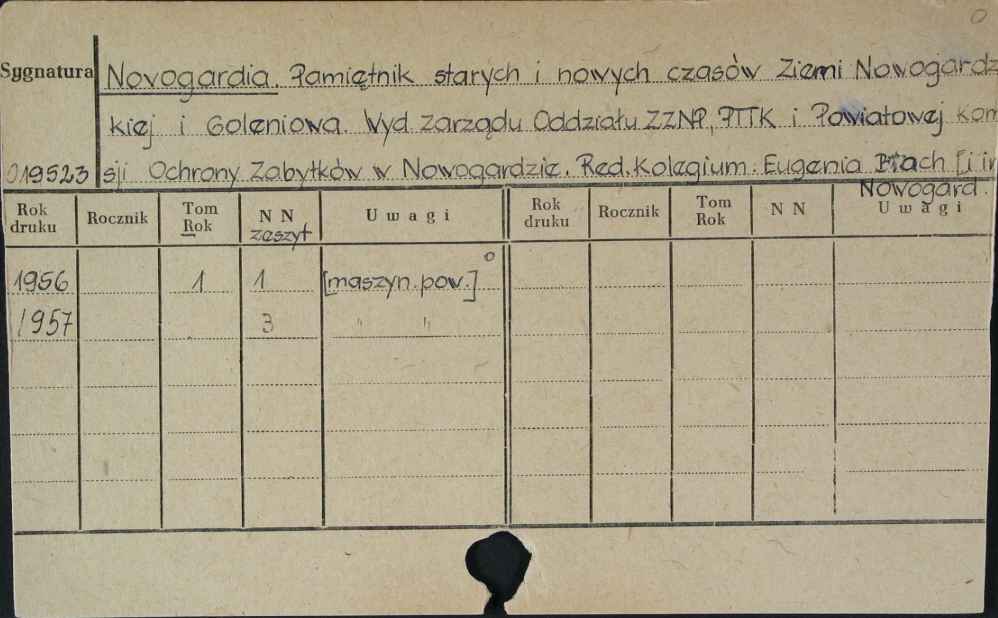 Sygnatura Novogardia. Pamiętnik starych i nowych czasów Ziemi Nowogardz
kiej i Goleniowa. Wyd Zarządu Oddziału ZZNP, PTTK i Powiatowej kom
019523 sji Ochrony Zabytków w Nowogardzie. Red. Kolegium. Eugenia [i in
Nowogard.
Rok druku Rocznik Tom Rok N N zeszyt Uwagi Rok druku Rocznik Tom Rok N N Uwagi
1956 1 1 [maszyn. pow.]
1957 3 " "